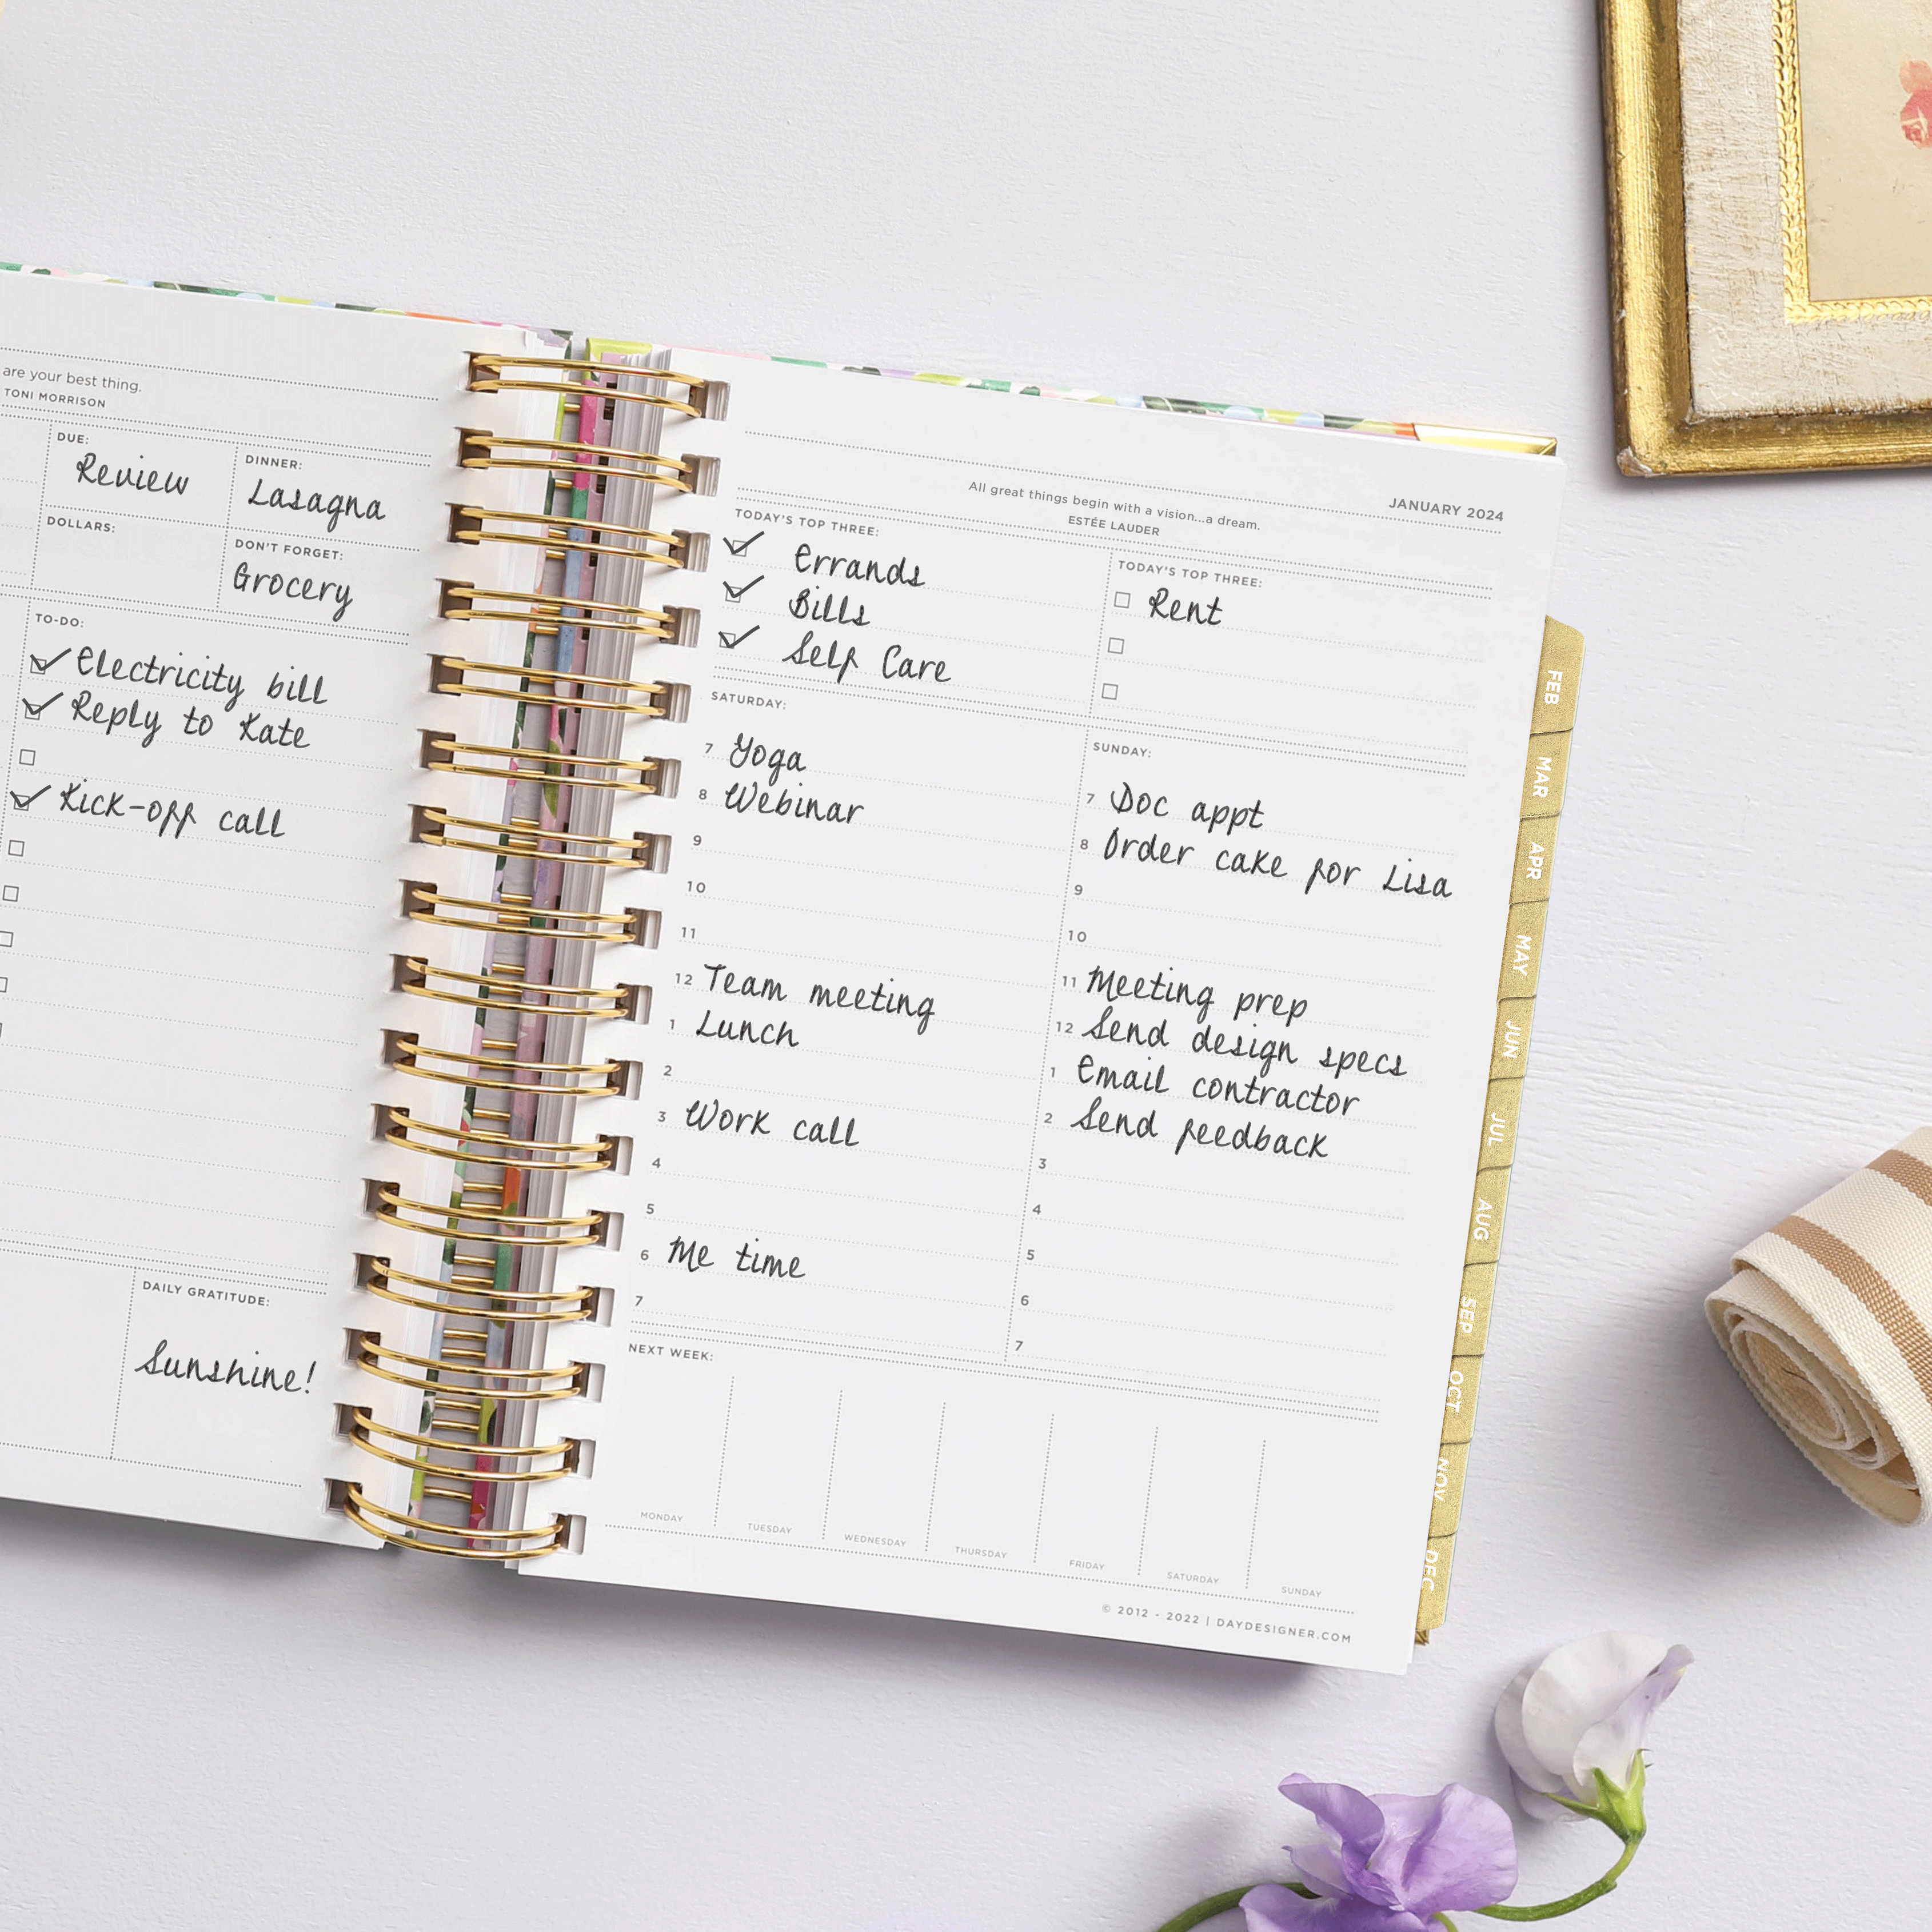 are your best thing.
TONI MORRISON
DUE:
Review
DINNER:
Lasagna
DOLLARS:
DON'T FORGET:
Grocery
TO-DO:
Electricity bill
Reply to Kate
Kick-off call
DAILY GRATITUDE:
Sunshine!
JANUARY 2024
All great things begin with a vision...a dream.
ESTÉE LAUDER
TODAY'S TOP THREE:
Errands
Bills
Self Care
TODAY'S TOP THREE:
Rent
SATURDAY:
7 Yoga
8 Webinar
9
10
11
12 Team meeting
1 Lunch
2
3 Work call
4
5
6 Me time
7
SUNDAY:
7 Doc appt
8 Order cake for Lisa
9
10
11 Meeting prep
12 Send design specs
1 Email contractor
2 Send feedback
3
4
5
6
7
NEXT WEEK:
MONDAY
TUESDAY
WEDNESDAY
THURSDAY
FRIDAY
SATURDAY
SUNDAY
© 2012 - 2022 | DAYDESIGNER.COM
FEB
MAR
APR
MAY
JUN
JUL
AUG
SEP
OCT
NOV
DEC